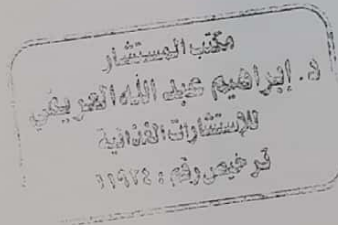 مكتب المستشار
د. إبراهيم عبد الله العريفي
للإستشارات القانونية
ترخيص رقم : ١١٩٢٤